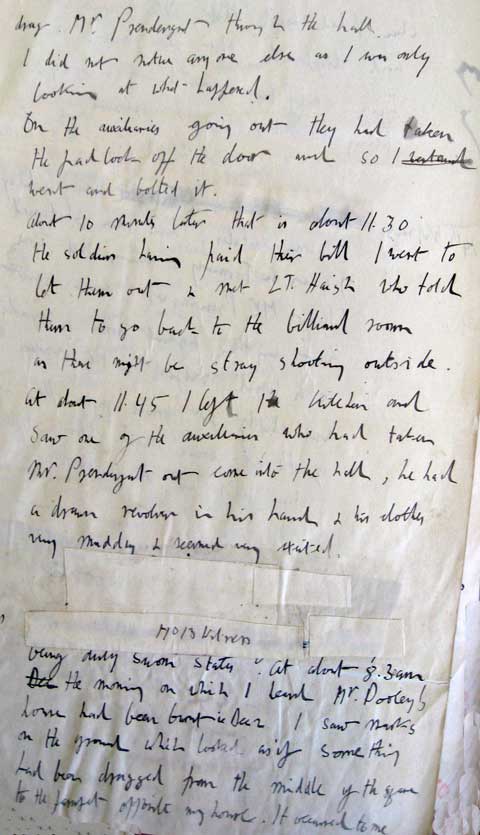 drag Mr. Prendergast through the hall.
I did not notice anyone else as I was only
looking at what happened.
On the auxiliaries going out they had taken
the padlock off the door and so I
went and bolted it.
about 10 minutes later that is about 11.30
the soldiers having paid their bill I went to
let them out & met LT. Haigh who told
them to go back to the billiard room
as there might be stray shooting outside.
At about 11.45 I left the kitchen and
saw one of the auxiliaries who had taken
Mr. Prendergast out come into the hall, he had
a drawn revolver in his hand & his clothes
very muddy & seemed very excited.
No 13 Witness
being duly sworn states: At about 8.30am
the morning on which I heard Mr. Dooley's
house had been burnt I saw marks
on the ground which looked as if something
had been dragged from the middle of the
to the parapet opposite my house. It occurred to me